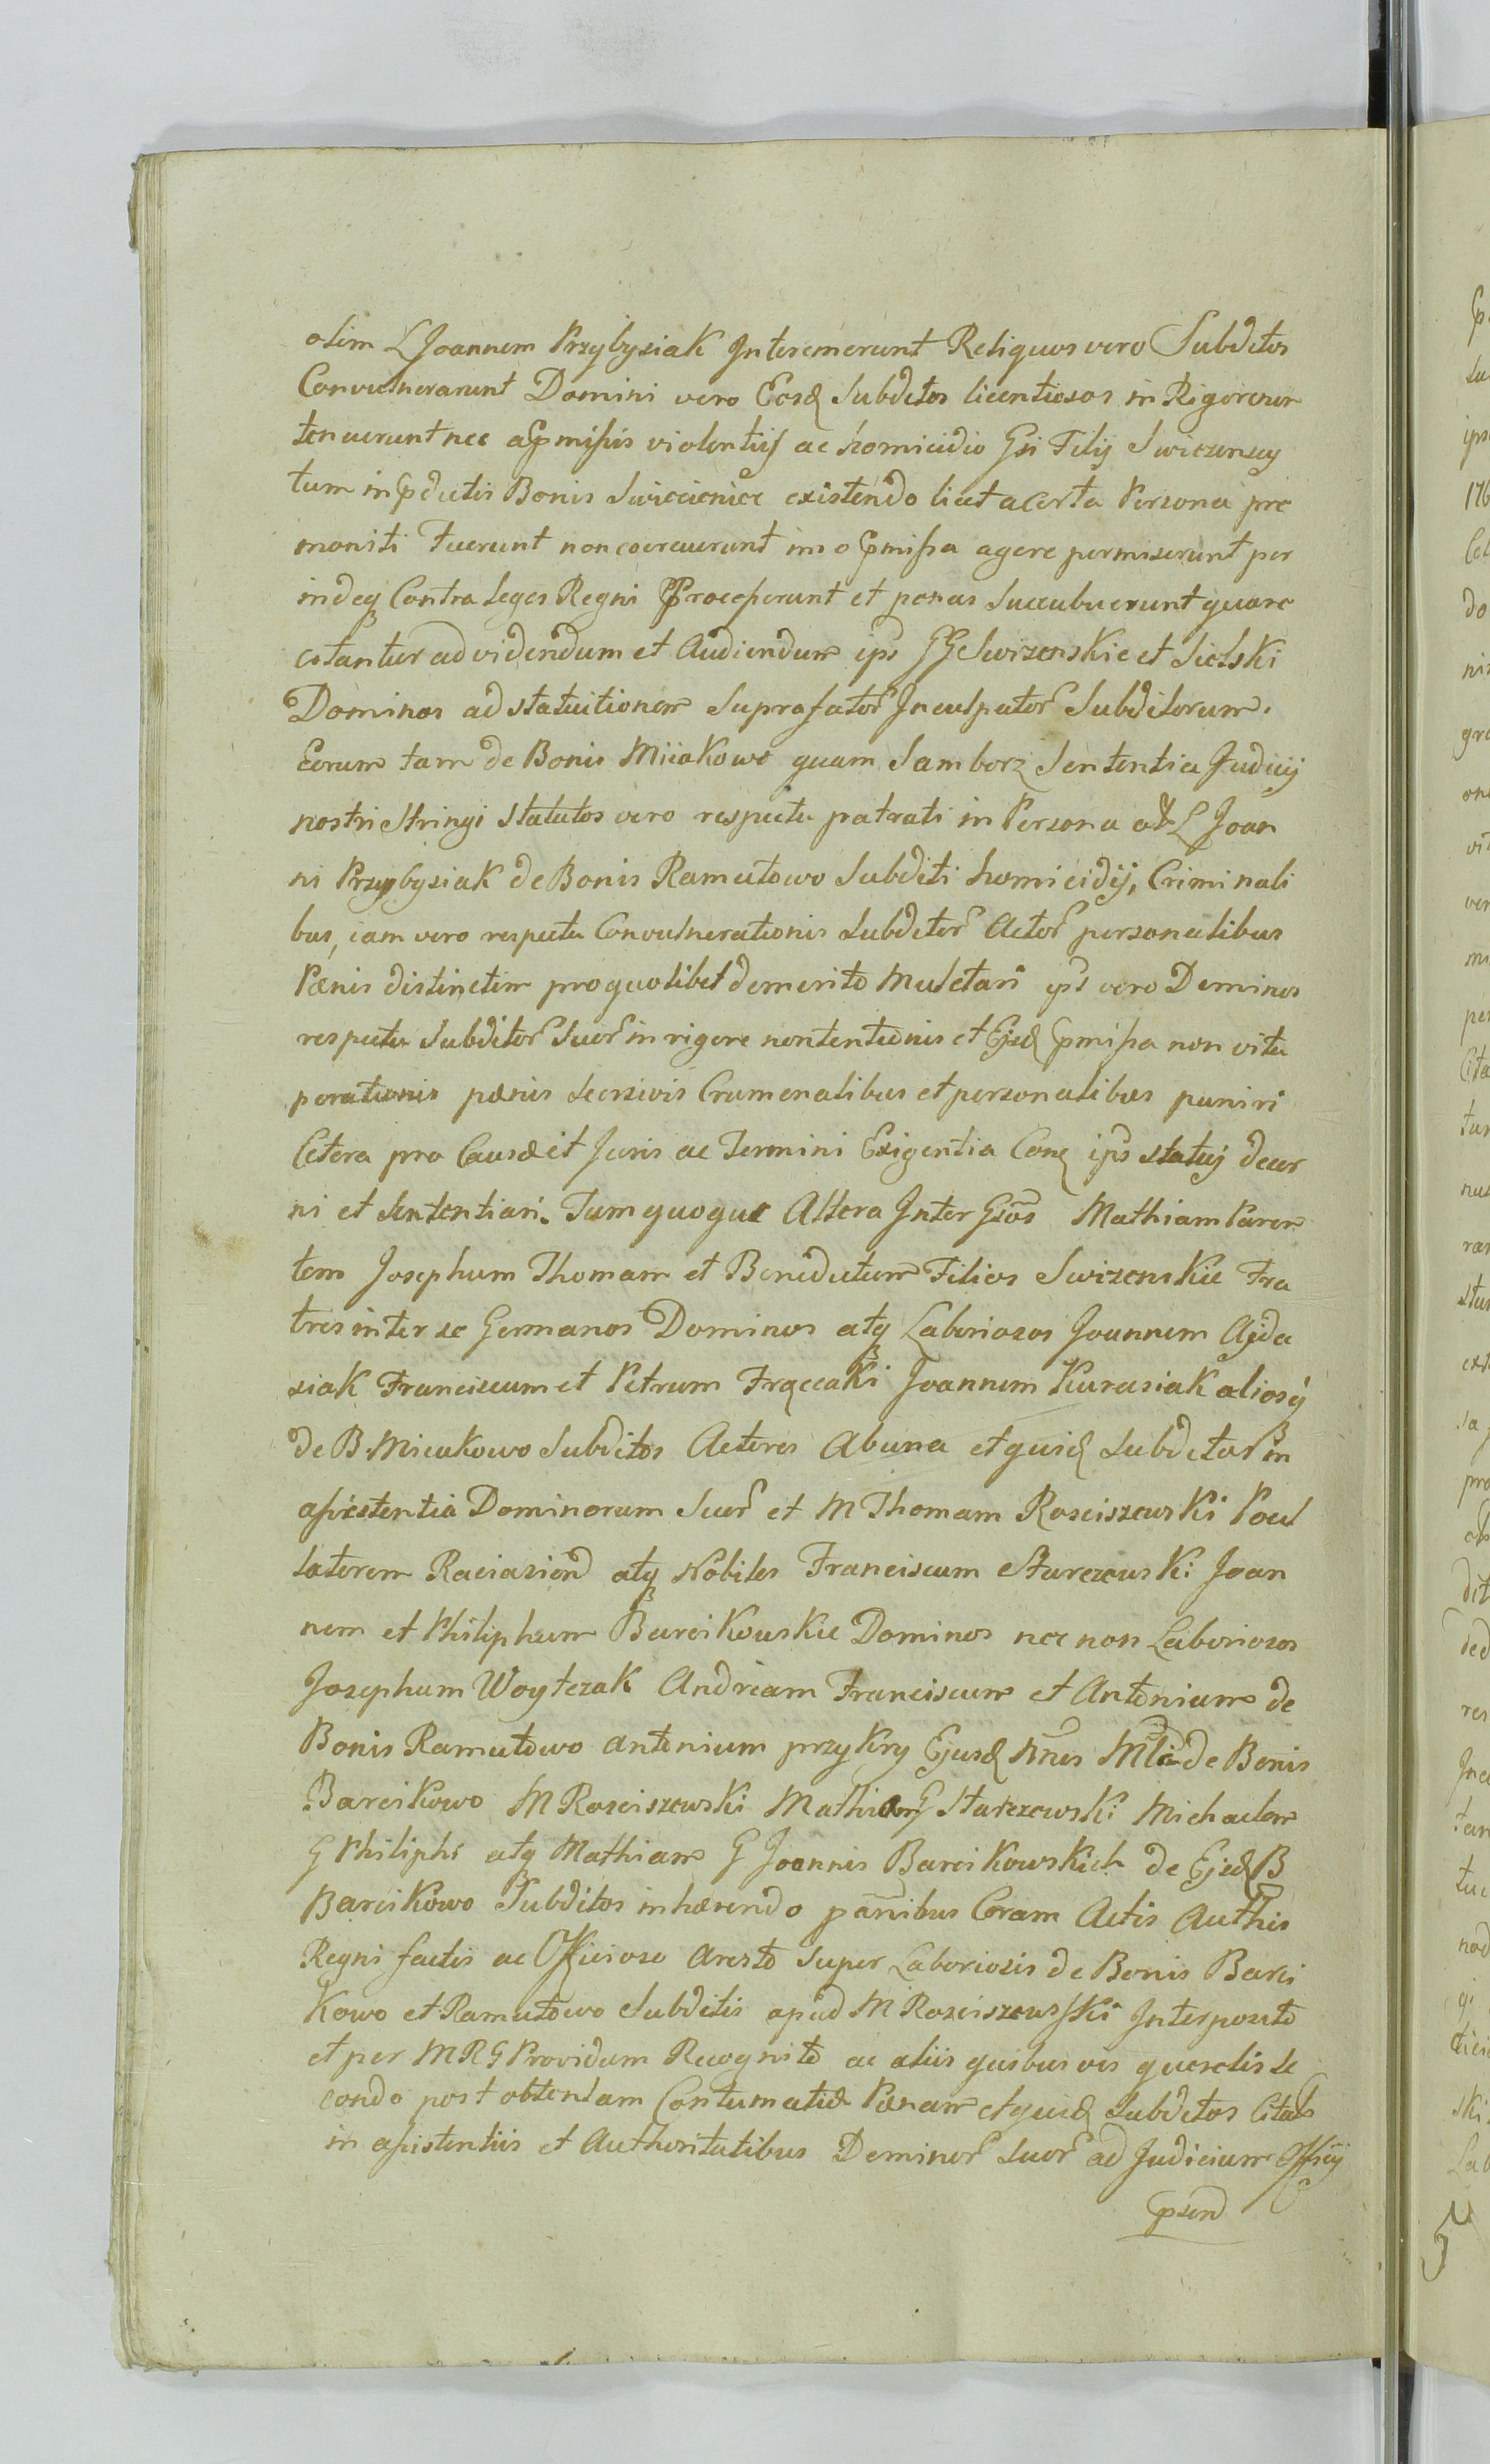 olim L Joannem Przybysiak Interemerunt Reliquos vero Subditos
Convulnerarunt Domini vero Eosd Subditos licentiosos in Rigorem
tenuerunt nec a Pmissis violentijs ac homicidio Gsi Filij Swiezenscy
tum in Pdictis Bonis Swiecienice existendo licet a Certa Persona pre
moniti Fuerunt non coercuerunt imo Pmissa agere permiserunt per
indeq Contra Leges Regni Processerunt et penas Succubuerunt quare
citantur ad videndum et Audiendum ips GG Swizenskie et Sielski
Dominos ad statuitionem Suprafator Inculpator Subditorum.
Eorum tam de Bonis Miiakowo quam Samborz Sententia Judicij
nostri Stringi Statutos vero respectu patrati in Persona L Joan
ni Przybysiak de Bonis Ramutowo Subditi homicidij, Criminali
bus, iam vero respectu Convulnerationis Subditor Actor personalibus
Pænis distinctim pro quolibet demerito Mulctari ips vero Dominos
respectu Subditor Suor in rigore nontentionis et Ejsd Pmissa non vitu
perationis pænis Seorsivis Crumenalibus et personalibus puniri
Cetera pro Causæ et Juris ac Termini Exigentia Conq ips statuj decer
ni et Sententiari. Tum quoque Altera Inter Gsos Mathiam Paren
tem Josephum Thomam et Benedictum Filios Swizenskie Fra
tres inter se Germanos Dominos atq Laboriosos Joannem Ajda
siak Franciscum et Petrum Fraccaki Joannem Kurasiak aliosq
de B. Miiakowo Subditos Actores Ab una et quisd Subditos in
assistentia Dominorum Suor et M Thomam Rosciszewski Pocil
latorem Raciazien atq Nobiles Franciscum Starczewski Joan
nem et Philiphum Barcikowskie Dominos nec non Laboriosos
Josephum Woytczak Andream Franciscum et Antonium de
Bonis Ramutowo Antonium przykry Ejusd de Bonis
Barcikowo M Rosciszewski Mathiam G Starczewski Michaelem
G Philiphi atq Mathiam G Joannis Barcikowskich de Ejsd B
Barcikowo Subditos inhærendo Coram Actis Authis
Regni factis ac Officioso Aresto Super Laboriosis de Bonis Barci
kowo et Ramutowo Subditis apud M Rosciszewski Interposito
et per M R G Providum Recognito ac aliis quibusvis querelis se
condo post obtentam Contumatiæ Pænam et quisd Subditos Citat
in assistentiis et Authoritatibus Dominor Suor ad Judicium Officij
psen